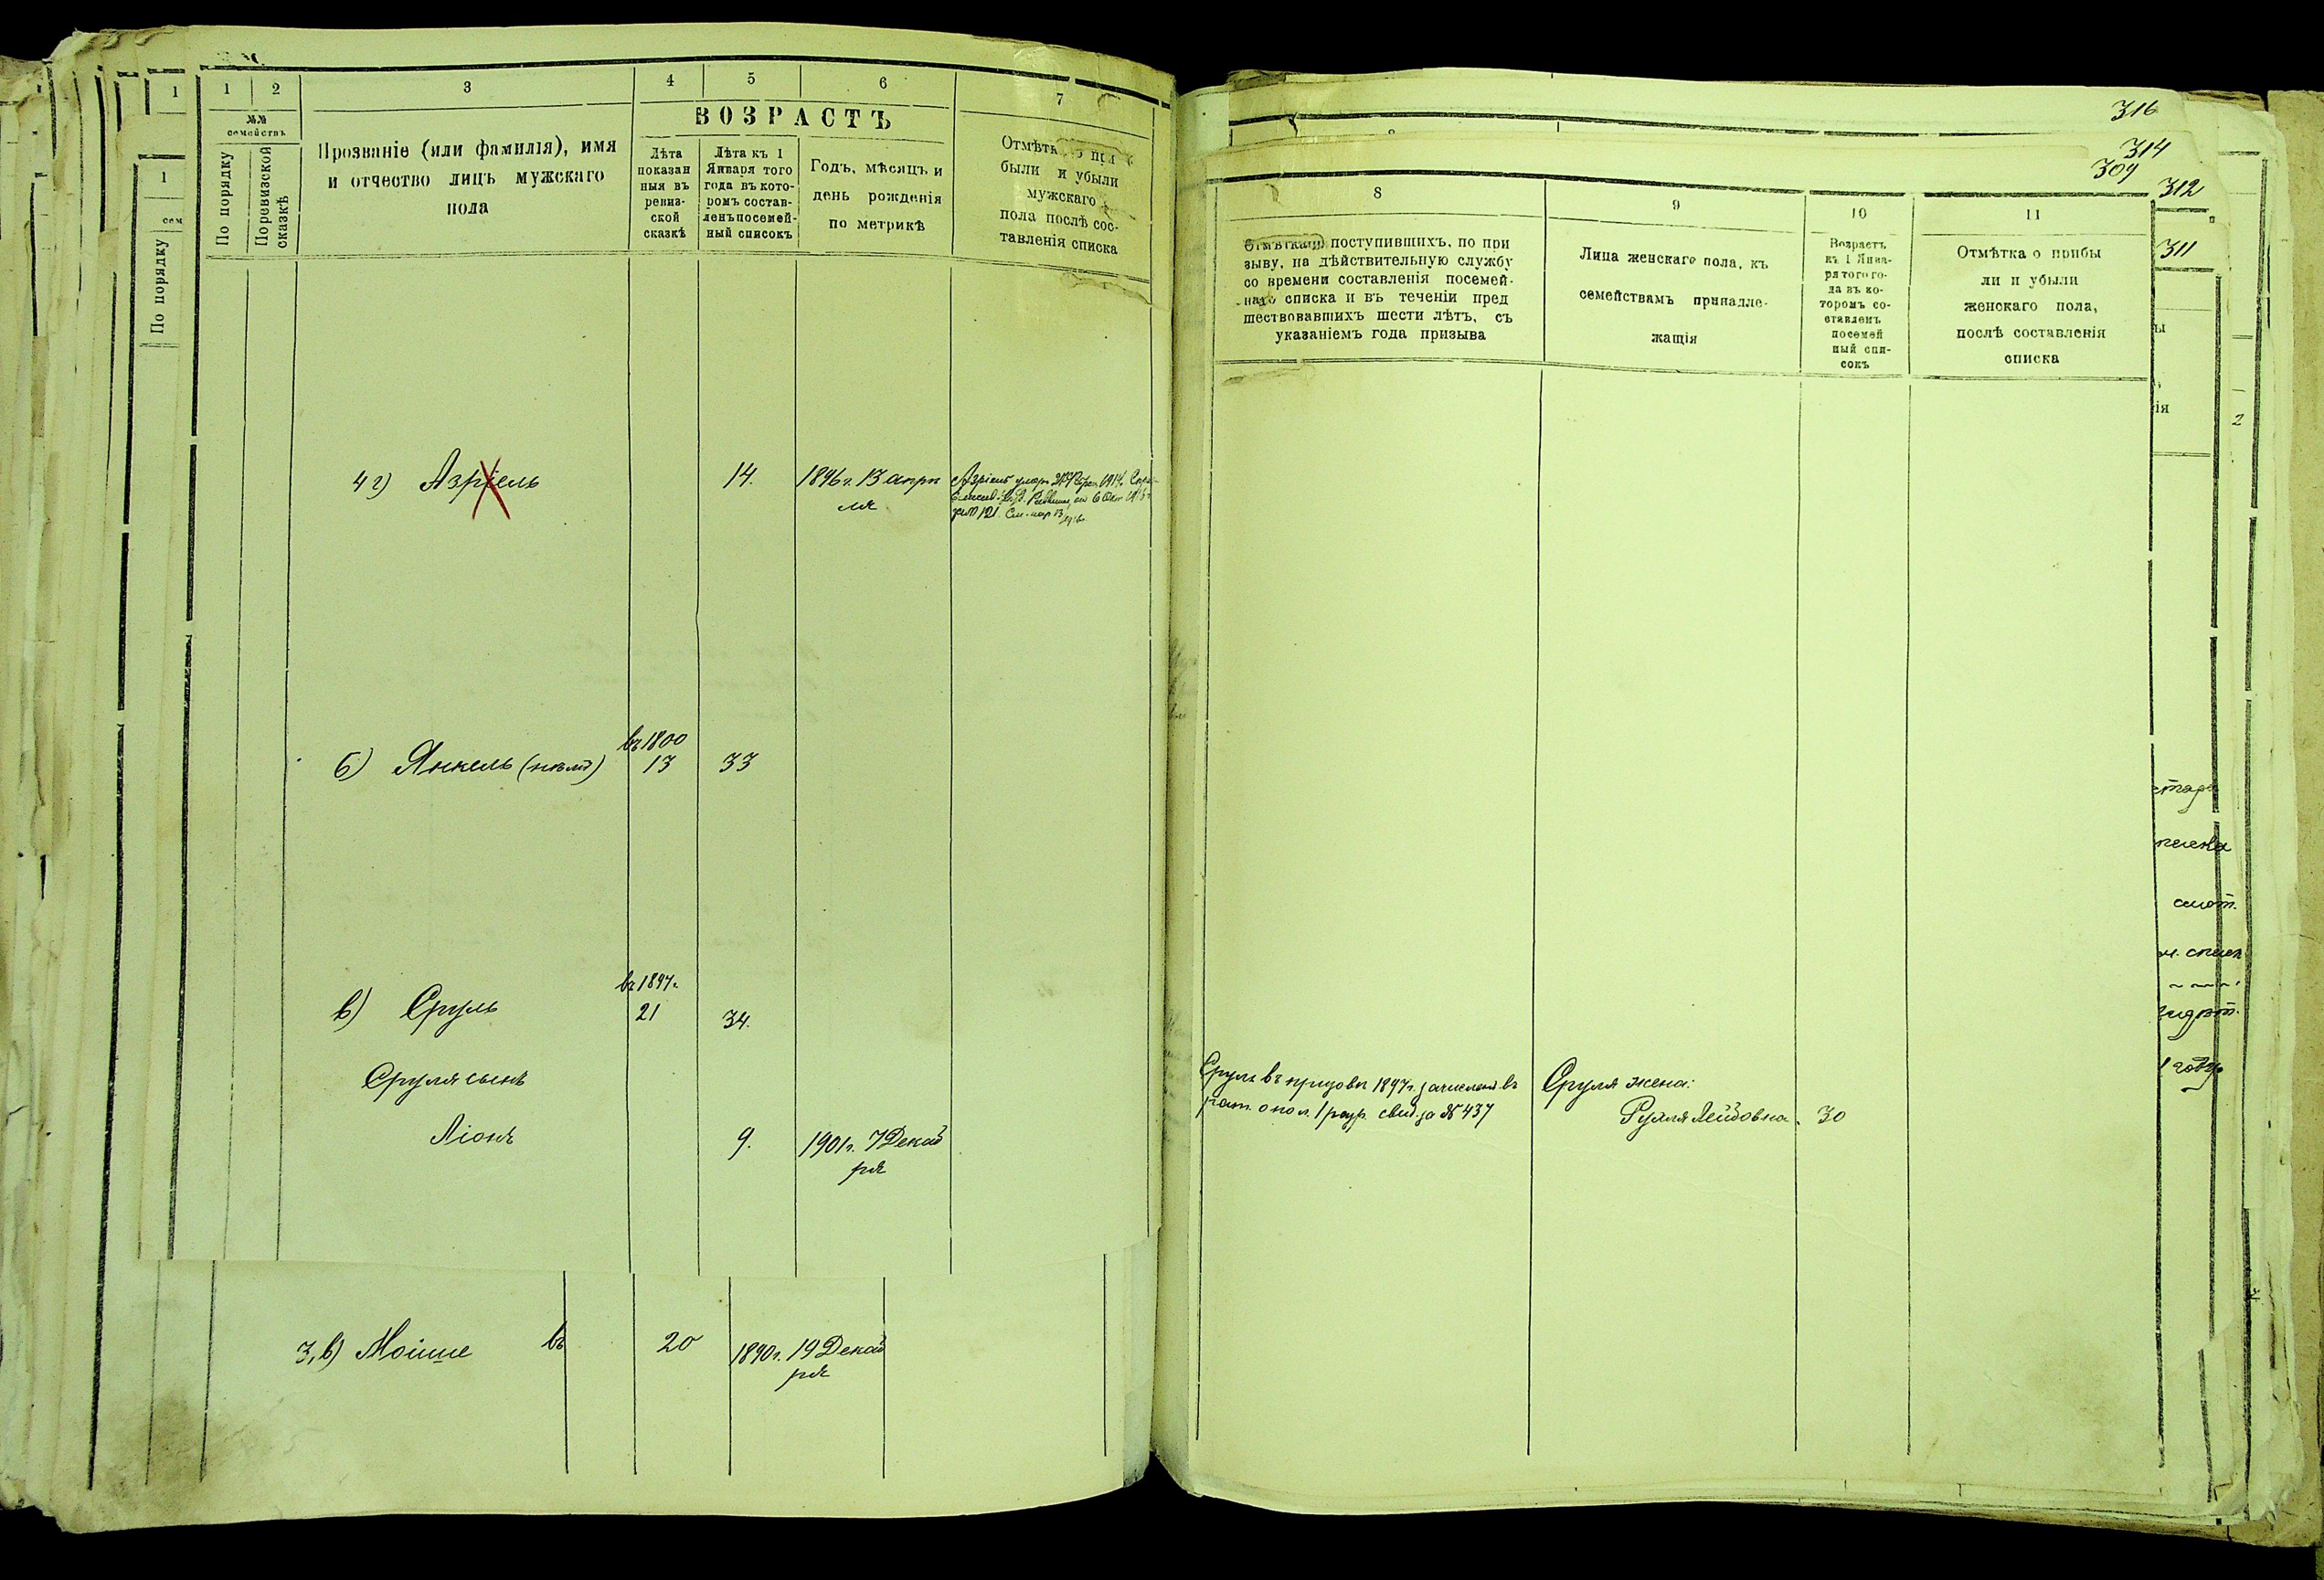 1
1
По порядку
сем
1
2
3
4
5
6
7
№№
семействъ
По порядку
По ревизской
сказкѣ
Прозваніе (или фамилія), имя
и отчество лицъ мужскаго
пола
ВОЗРАСТЪ
Лѣта
показан
ныя въ
ревиз-
ской
сказкѣ
Лѣта къ 1
Января того
года въ кото-
ромъ состав-
ленъ посемей-
ный списокъ
Годъ, мѣсяцъ и
день рожденія
по метрикѣ
Отмѣтка о при
были и убыли
мужскаго
пола послѣ сос-
тавленія списка
4 г) Азріель 14. 1896 г. 13 апрѣ
ля
Азріель умеръ
за № 121. См.
б) Янкель (нѣмъ) въ 1800
13 33
в) Сруль въ 1897 г.
21 34.
Сруля сынъ
Ліонъ 9. 1901 г. 7 Декаб
ря
3, в) Моише въ 20 1890 г. 19 Декаб
ря
316
314
309
312
311
8
9
10
11
Отмѣтка о поступившихъ, по при
зыву, на дѣйствительную службу
со времени составленія посемей-
наго списка и въ теченіи пред
шествовавшихъ шести лѣтъ, съ
указаніемъ года призыва
Лица женскаго пола, къ
семействамъ принадле-
жащія
Возрастъ
къ 1 Янва-
ря того го-
да въ ко-
торомъ со-
ставленъ
посемей
ный спи-
сокъ
Отмѣтка о прибы
ли и убыли
женскаго пола,
послѣ составленія
списка
Сруль въ призывъ 1897 г. зачисленъ въ
рат. опол. 1 разр. свид. за № 437
Сруля жена:
Рухля Лейбовна. 30
ы
ія
2